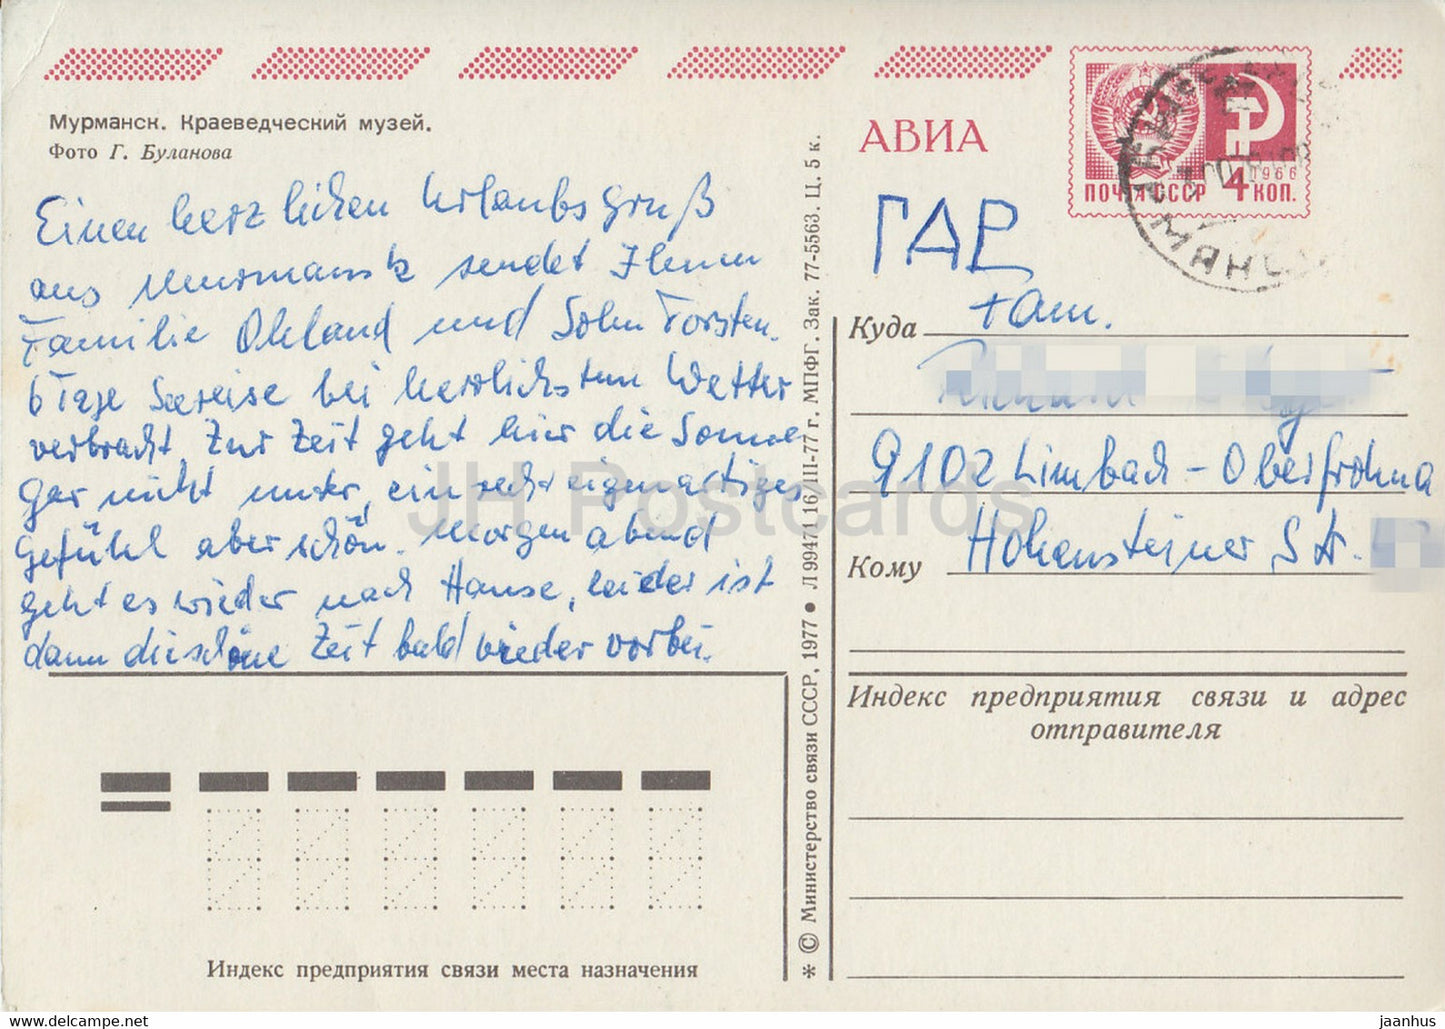 Мурманск. Краеведческий музей.
Фото Г. Буланова
Einen herzlichen Urlaubsgruß
aus Murmansk sendet Ihnen
Familie Ohland und Sohn Torsten.
6 Tage Seereise bei herrlichstem Wetter
verbracht. Zur Zeit geht hier die Sonne
gar nicht unter, ein recht eigenartiges
Gefühl aber schön. Morgen abend
geht es wieder nach Hause, leider ist
dann die schöne Zeit bald wieder vorbei.
Индекс предприятия связи места назначения
* © Министерство связи СССР, 1977 • Л 99471 16/III-77 г. МПФГ. Зак. 77-5563. Ц. 5 к.
АВИА
ПОЧТА СССР 4 КОП.
1966
ГДР
Куда Fam.
9102 Limbach-Oberfrohna
Кому Hohensteiner Str.
Индекс предприятия связи и адрес
отправителя
JH Postcards
jaanhus